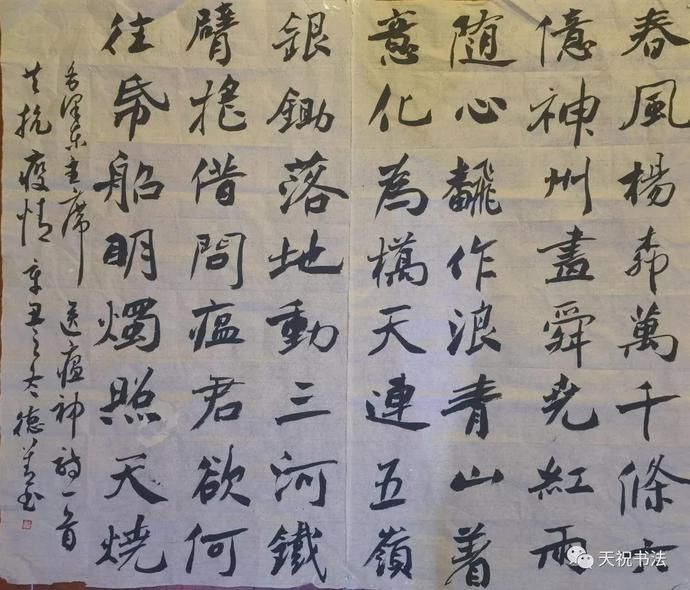 春風楊柳萬千條六
億神州盡舜堯紅雨
随心飜作浪青山着
意化為橋天連五嶺
銀鋤落地動三河鐵
臂摇借問瘟君欲何
往帋船明燭照天燒
毛澤东主席 送瘟神詩一首
共抗疫情 辛丑之冬德书
天祝书法